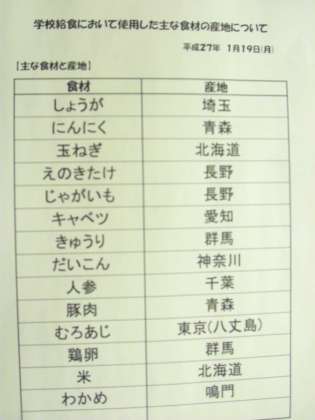 学校給食において使用した主な食材の産地について
平成27年 1月19日(月)
【主な食材と産地】
食材 産地
しょうが 埼玉
にんにく 青森
玉ねぎ 北海道
えのきたけ 長野
じゃがいも 長野
キャベツ 愛知
きゅうり 群馬
だいこん 神奈川
人参 千葉
豚肉 青森
むろあじ 東京(八丈島)
鶏卵 群馬
米 北海道
わかめ 鳴門